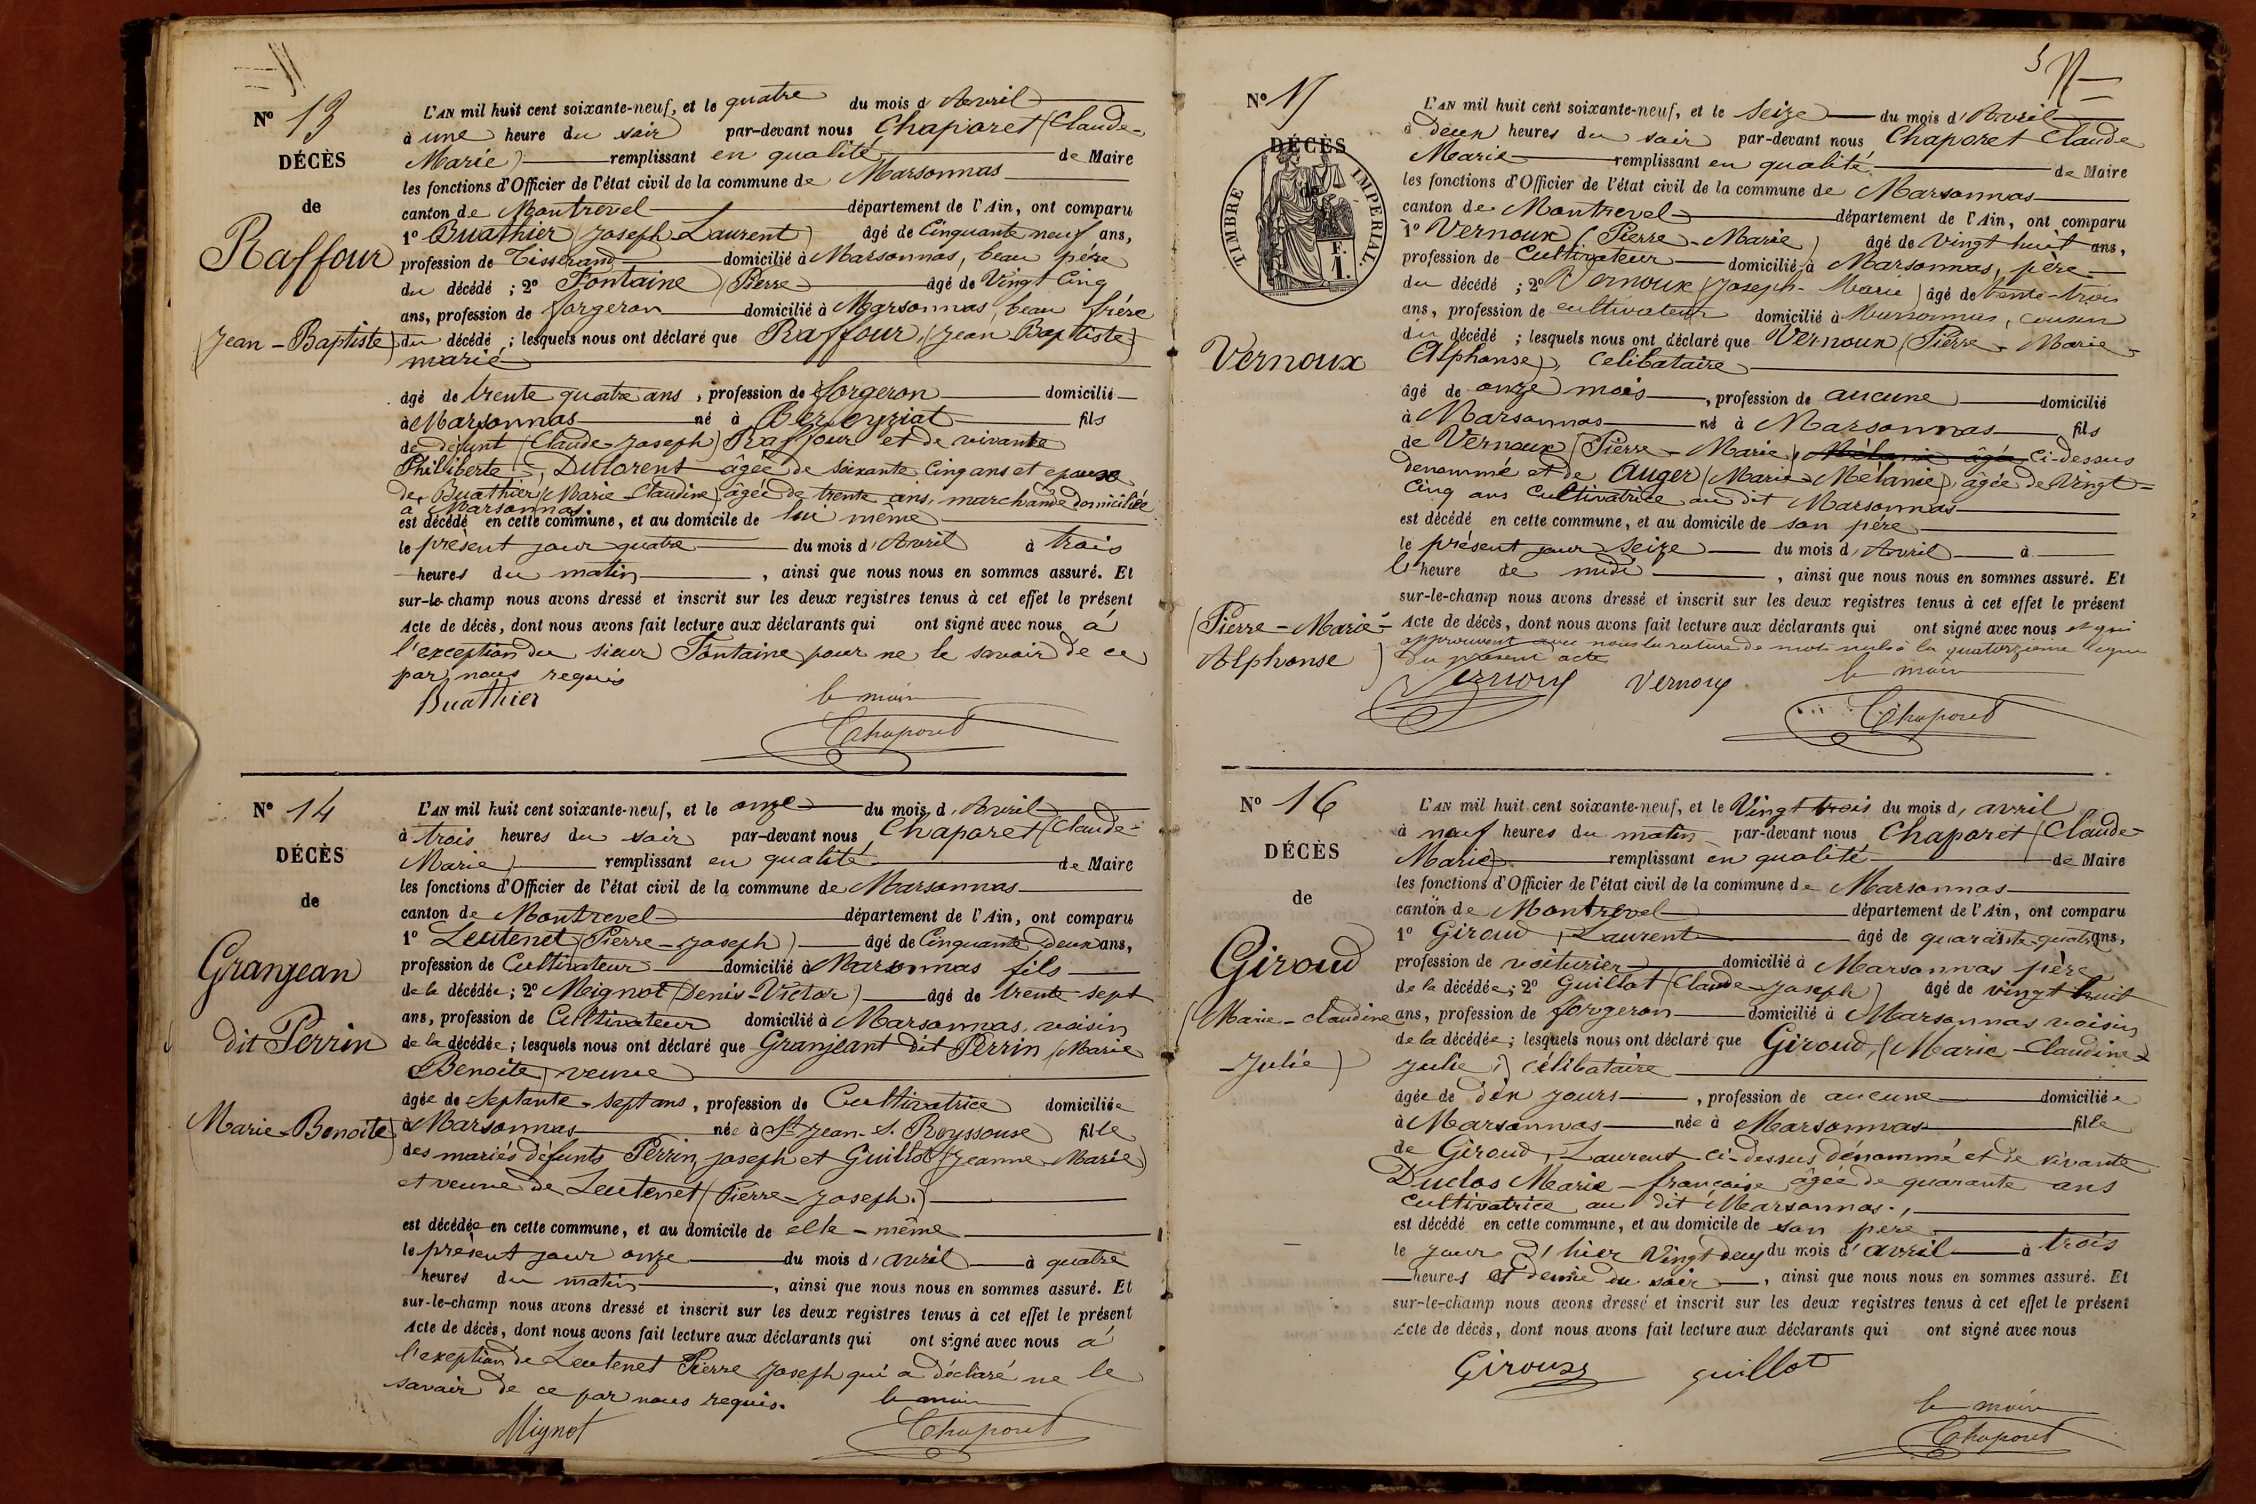 N° 13
DÉCÈS
de
Raffour
(Jean-Baptiste)
L'AN mil huit cent soixante-neuf, et le quatre du mois d'Avril
à une heure du soir par-devant nous Chaporet (Claude-
Marie) remplissant en qualité de Maire
les fonctions d'Officier de l'état civil de la commune de Marsonnas
canton de Montrevel département de l'Ain, ont comparu
1° Buathier (Joseph Laurent) âgé de Cinquante neuf ans,
profession de Tisserand domicilié à Marsonnas, beau père
du décédé ; 2° Fontaine (Pierre) âgé de Vingt Cinq
ans, profession de forgeron domicilié à Marsonnas, beau frère
du décédé ; lesquels nous ont déclaré que Raffour, (Jean Baptiste)
marié
âgé de trente quatre ans, profession de forgeron domicilié
à Marsonnas né à Béréyziat fils
de défunt (Claude-Joseph) Raffour et de vivante
Philiberte Dutorent âgée de soixante cinq ans et epoux
de Buathier (Marie-Claudine) âgée de trente ans, marchande domiciliée
à Marsonnas.
est décédé en cette commune, et au domicile de lui même
le présent jour quatre du mois d'Avril à trois
heures du matin, ainsi que nous nous en sommes assuré. Et
sur-le-champ nous avons dressé et inscrit sur les deux registres tenus à cet effet le présent
Acte de décès, dont nous avons fait lecture aux déclarants qui ont signé avec nous à
l'exception du sieur Fontaine pour ne le savoir de ce
par nous requis
Buathier le maire
Chaporet
N° 14
DÉCÈS
de
Granjean
dit Perrin
(Marie-Benoite)
L'AN mil huit cent soixante-neuf, et le onze du mois d'Avril
à trois heures du soir par-devant nous Chaporet (Claude-
Marie) remplissant en qualité de Maire
les fonctions d'Officier de l'état civil de la commune de Marsonnas
canton de Montrevel département de l'Ain, ont comparu
1° Leutenet (Pierre-Joseph) âgé de Cinquante deux ans,
profession de Cultivateur domicilié à Marsonnas fils
de la décédée ; 2° Mignot (Denis-Victor) âgé de trente-sept
ans, profession de Cultivateur domicilié à Marsonnas, voisin
de la décédée ; lesquels nous ont déclaré que Granjeant dit Perrin (Marie
Benoite) veuve
âgée de Septante-sept ans, profession de Cultivatrice domiciliée
à Marsonnas née à St Jean-s. Reyssouse fille
des mariés défunts Perrin, Joseph et Guillot (Jeanne-Marie)
et veuve de Leutenet (Pierre-Joseph.)
est décédée en cette commune, et au domicile de elle-même
le présent jour onze du mois d'avril à quatre
heures du matin, ainsi que nous nous en sommes assuré. Et
sur-le-champ nous avons dressé et inscrit sur les deux registres tenus à cet effet le présent
Acte de décès, dont nous avons fait lecture aux déclarants qui ont signé avec nous à
l'exeption de Leutenet Pierre Joseph qui a déclaré ne le
savoir de ce par nous requis. le maire
Mignot Chaporet
N° 15
DÉCÈS
de
TIMBRE IMPERIAL
F.
1.
Vernoux
(Pierre-Marie-
Alphonse)
L'AN mil huit cent soixante-neuf, et le Seize du mois d'Avril
à deux heures du soir par-devant nous Chaporet Claude
Marie remplissant en qualité de Maire
les fonctions d'Officier de l'état civil de la commune de Marsonnas
canton de Montrevel département de l'Ain, ont comparu
1° Vernoux (Pierre-Marie) âgé de vingt huit ans,
profession de Cultivateur domicilié à Marsonnas, père
du décédé ; 2° Vernoux (Joseph-Marie) âgé de trente-trois
ans, profession de cultivateur domicilié à Marsonnas, cousin
du décédé ; lesquels nous ont déclaré que Vernoux (Pierre-Marie-
Alphonse), Celibataire
âgé de onze mois, profession de aucune domicilié
à Marsonnas né à Marsonnas fils
de Vernoux (Pierre-Marie) Mélanie âgée Ci-dessus
denommé et de Auger (Marie Mélanie), âgée de Vingt-
Cinq ans Cultivatrice au dit Marsonnas
est décédé en cette commune, et au domicile de son père
le présent jour Seize du mois d'Avril à
l'heure de midi, ainsi que nous nous en sommes assuré. Et
sur-le-champ nous avons dressé et inscrit sur les deux registres tenus à cet effet le présent
Acte de décès, dont nous avons fait lecture aux déclarants qui ont signé avec nous et qui
approuvent avec nous la rature de mots nuls à la quatorzième ligne
du présent acte
Vernoux Vernoux le maire
Chaporet
N° 16
DÉCÈS
de
Giroud
(Marie-Claudine
-Julie)
L'AN mil huit cent soixante-neuf, et le Vingt trois du mois d'avril
à neuf heures du matin par-devant nous Chaporet (Claude-
Marie) remplissant en qualité de Maire
les fonctions d'Officier de l'état civil de la commune de Marsonnas
canton de Montrevel département de l'Ain, ont comparu
1° Giroud, Laurent âgé de quarante-quatre ans,
profession de voiturier domicilié à Marsonnas père
de la décédée ; 2° Guillot (Claude-Joseph) âgé de vingt huit
ans, profession de forgeron domicilié à Marsonnas voisin
de la décédée ; lesquels nous ont déclaré que Giroud, (Marie-Claudine-
Julie,) célibataire
âgée de dix jours, profession de aucune domiciliée
à Marsonnas née à Marsonnas fille
de Giroud, Laurent ci-dessus dénommé et de vivante
Duclos Marie-françoise, âgée de quarante ans
Cultivatrice au dit Marsonnas.,
est décédé en cette commune, et au domicile de son père
le jour d'hier Vingt deux du mois d'avril à trois
heures et demie du soir, ainsi que nous nous en sommes assuré. Et
sur-le-champ nous avons dressé et inscrit sur les deux registres tenus à cet effet le présent
Acte de décès, dont nous avons fait lecture aux déclarants qui ont signé avec nous
Giroud guillot
le maire
Chaporet